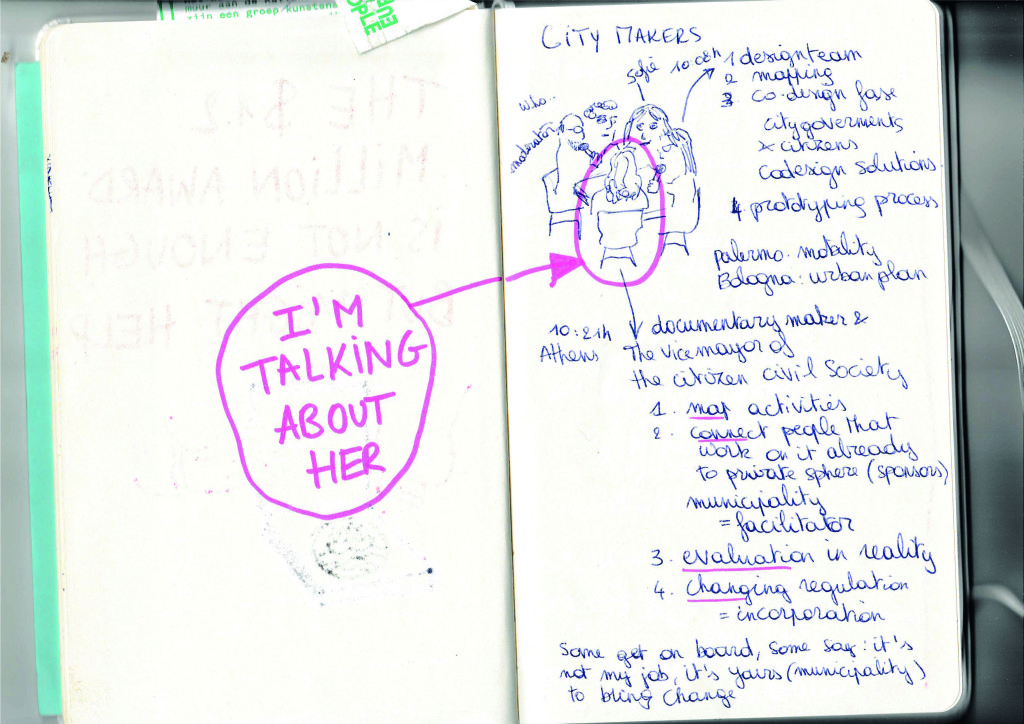 zijn een groep kunstena
I'M
TALKING
ABOUT
HER
CITY MAKERS
Sofie 10:08h
who...
moderator
1 designteam
2 mapping
3. co-design fase
citygoverments
x citizens
codesign solutions.
4. prototyping process
palermo: mobility
Bologna: urban plan
10:21h
Athens
documentary maker &
The vice mayor of
the citizen civil Society
1. map activities
2. connect people that
work on it already
to private sphere (sponsors)
municipality
= facilitator
3. evaluation in reality
4. changing regulation
= incorporation
Some get on board, some say: it's
not my job, it's yours (municipality)
to bring change
THE $1.2
MILLION AWARD
IS NOT ENOUGH
HELP